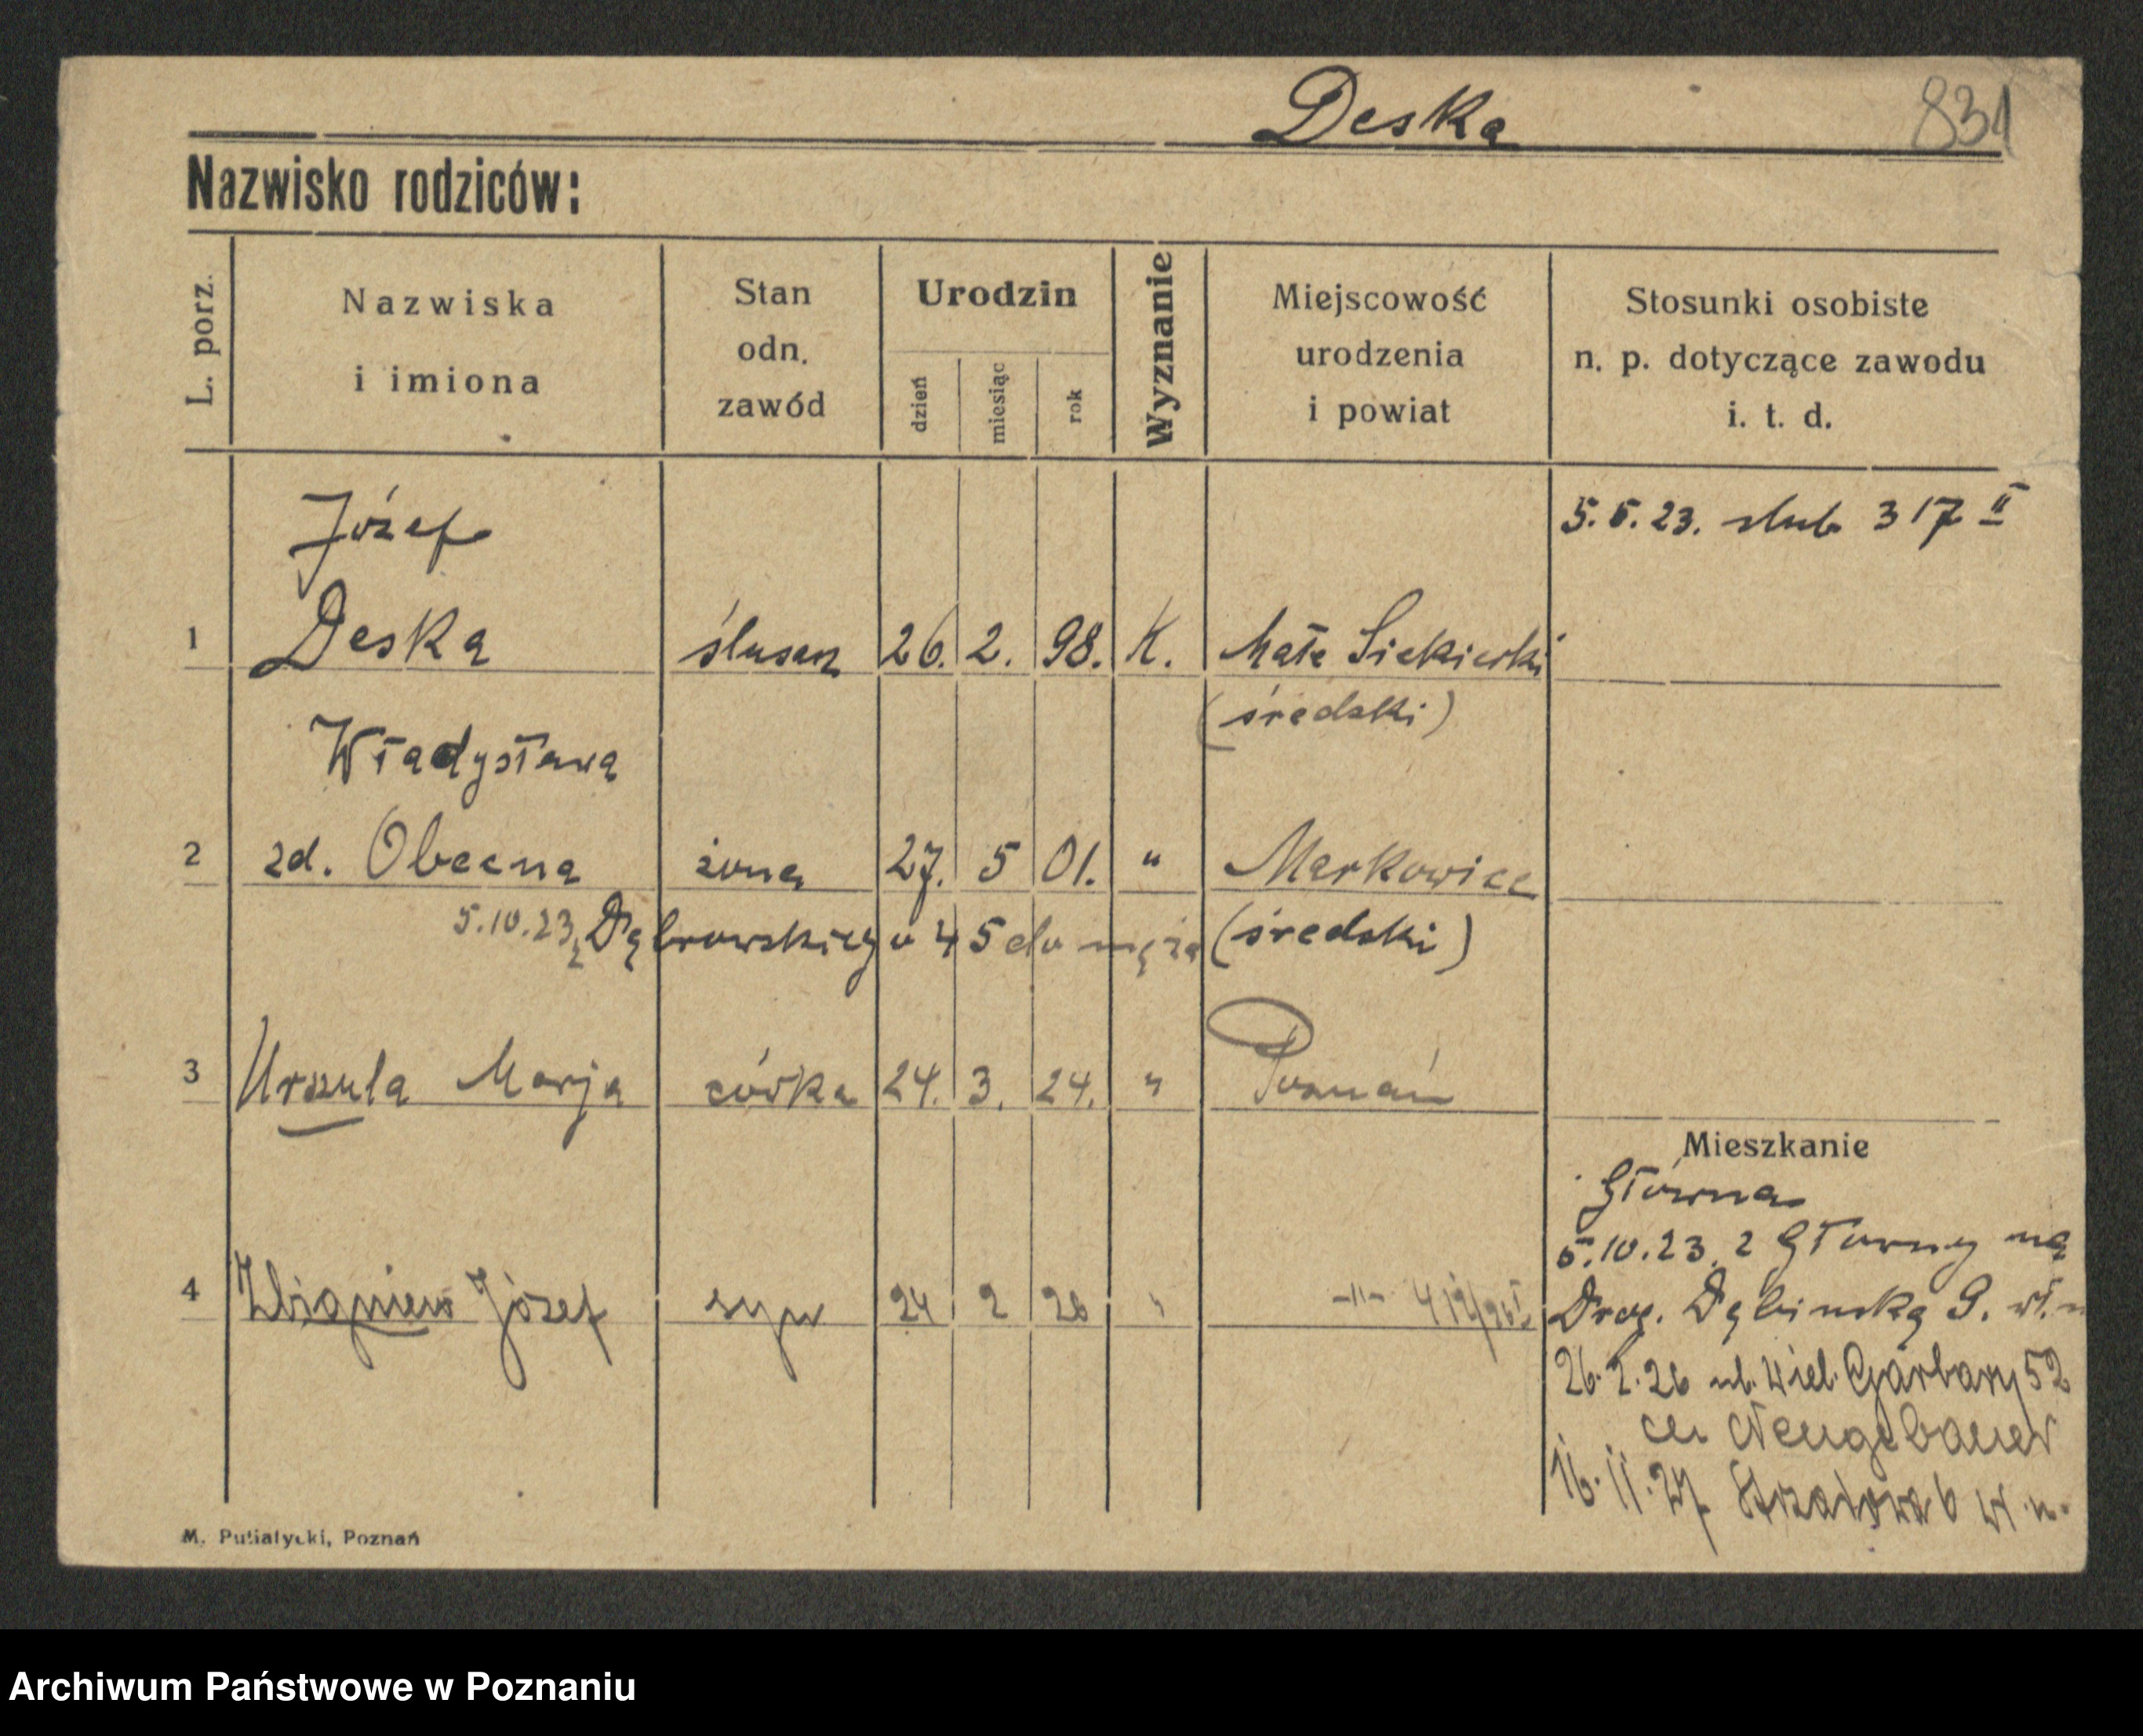 Deska 831
Nazwisko rodziców:
L. porz.
Nazwiska
i imiona
Stan
odn.
zawód
Urodzin
dzień
miesiąc
rok
Wyznanie
Miejscowość
urodzenia
i powiat
Stosunki osobiste
n. p. dotyczące zawodu
i. t. d.
Józef
5.5.23. slub 317 II
1 Deska ślusarz 26. 2. 98. K. Małe Siekierki
(średzki)
Władysława
2 zd. Obecna żona 27. 5 01. " Markowice
5.10.23 z Dąbrowskiego 45 do męża (średzki)
3 Urszula Marja córka 24. 3. 24. " Poznań
Mieszkanie
Główna
5.10.23. z Głowny na
4 Zbigniew Józef syn 24 2 26 " -"-
Drog. Dębinską 9. wł.
26.2.26 ul. Wiel. Garbary 52
Neugebauer
16.11.27 Strzałowa 6 wł. m.
M. Putiatycki, Poznań
Archiwum Państwowe w Poznaniu